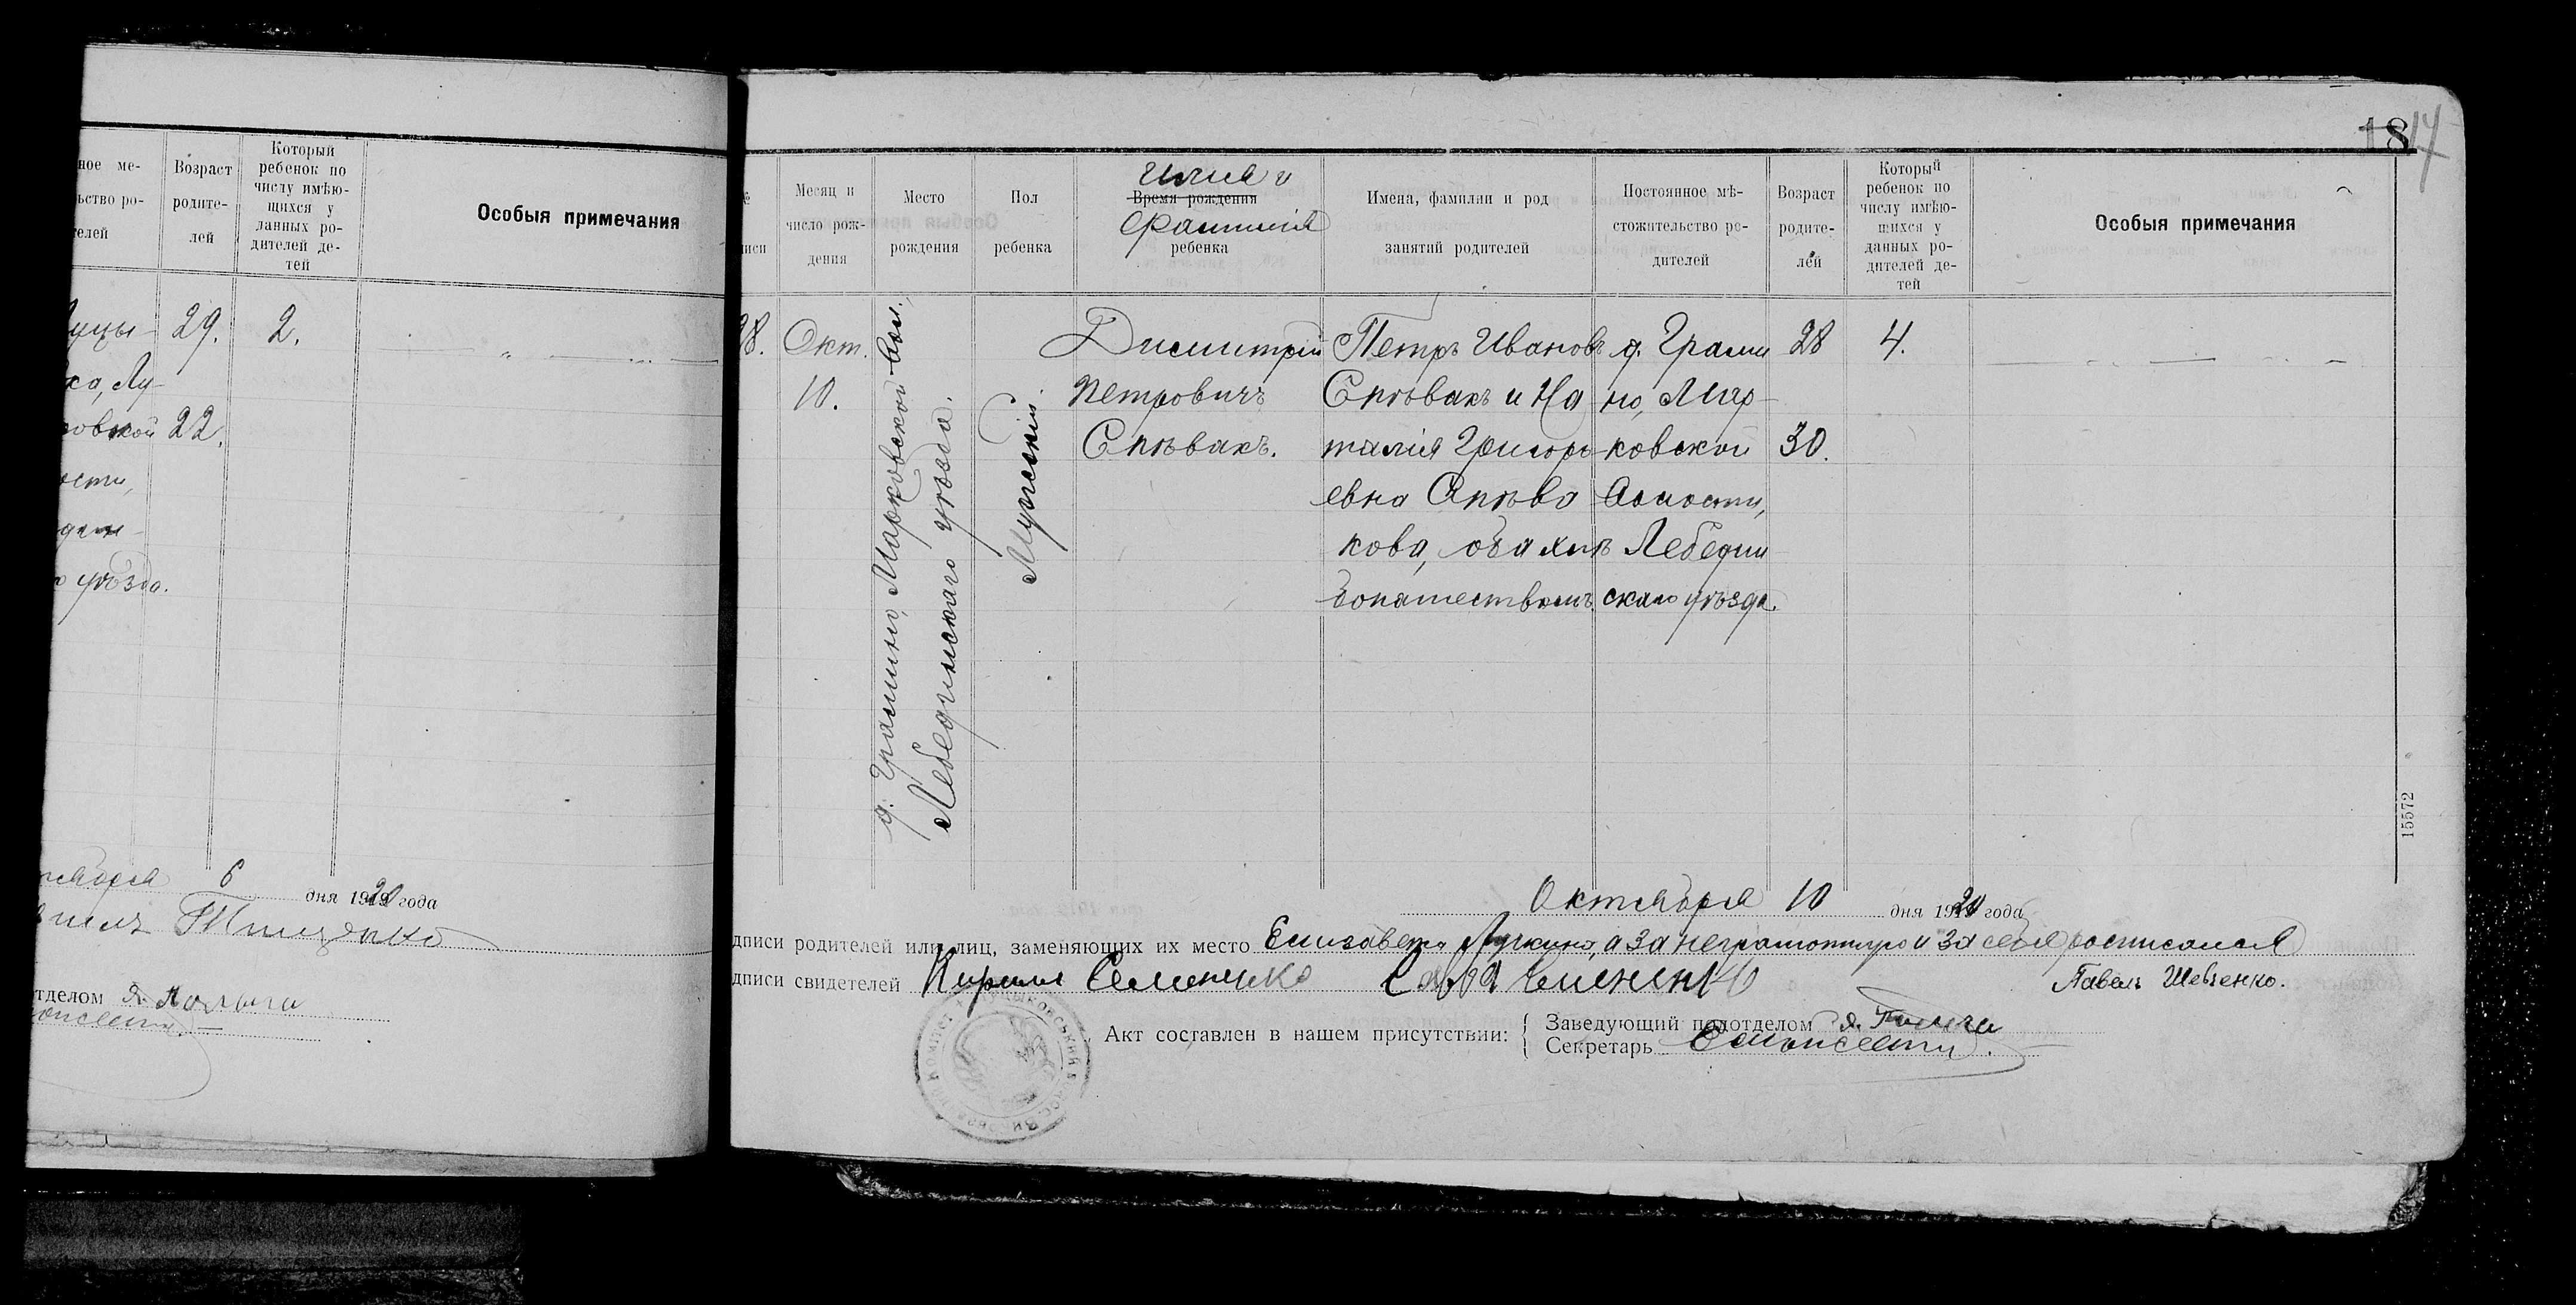 ное ме-
ьство ро-
телей
Возраст
родите-
лей
Который
ребенок по
числу имѣю-
щихся у
данных ро-
дителей де-
тей
Особыя примечания
29.
2.
ха, Лу-
22.
ости,
уѣзда.
6 дня 1920 года
Тищенко
тделом
1814
№
писи
Месяц и
число рож-
дения
Место
рождения
Пол
ребенка
Имя и
Время рождения
Фамилія
ребенка
Имена, фамилии и род
занятий родителей
Постоянное мѣ-
стожительство ро-
дителей
Возраст
родите-
лей
Который
ребенок по
числу имѣю-
щихся у
данных ро-
дителей де-
тей
Особыя примечания
28.
Окт.
10.
д. Грамино, Марковской вол.,
Лебединскаго уѣзда.
Мужескій.
Димитрій
Петровичъ
Спѣвакъ.
Петръ Ивановъ
Спѣвакъ и На
талія Григорь
евна Спѣва
кова, оба хлѣ
бопашествомъ.
д. Грами
но, Мар-
ковской
волости,
Лебедин
скаго уѣзда.
28
30.
4.
15572
Октября 10 дня 1920 года
дписи родителей или лиц, заменяющих их место Елизавета Лучкина, а за неграмотную и за себя росписался
дписи свидетелей Кирилл Семененко Савва Семененко Павелъ Шевченко.
Акт составлен в нашем присутствии:
Заведующий подотделом
Секретарь